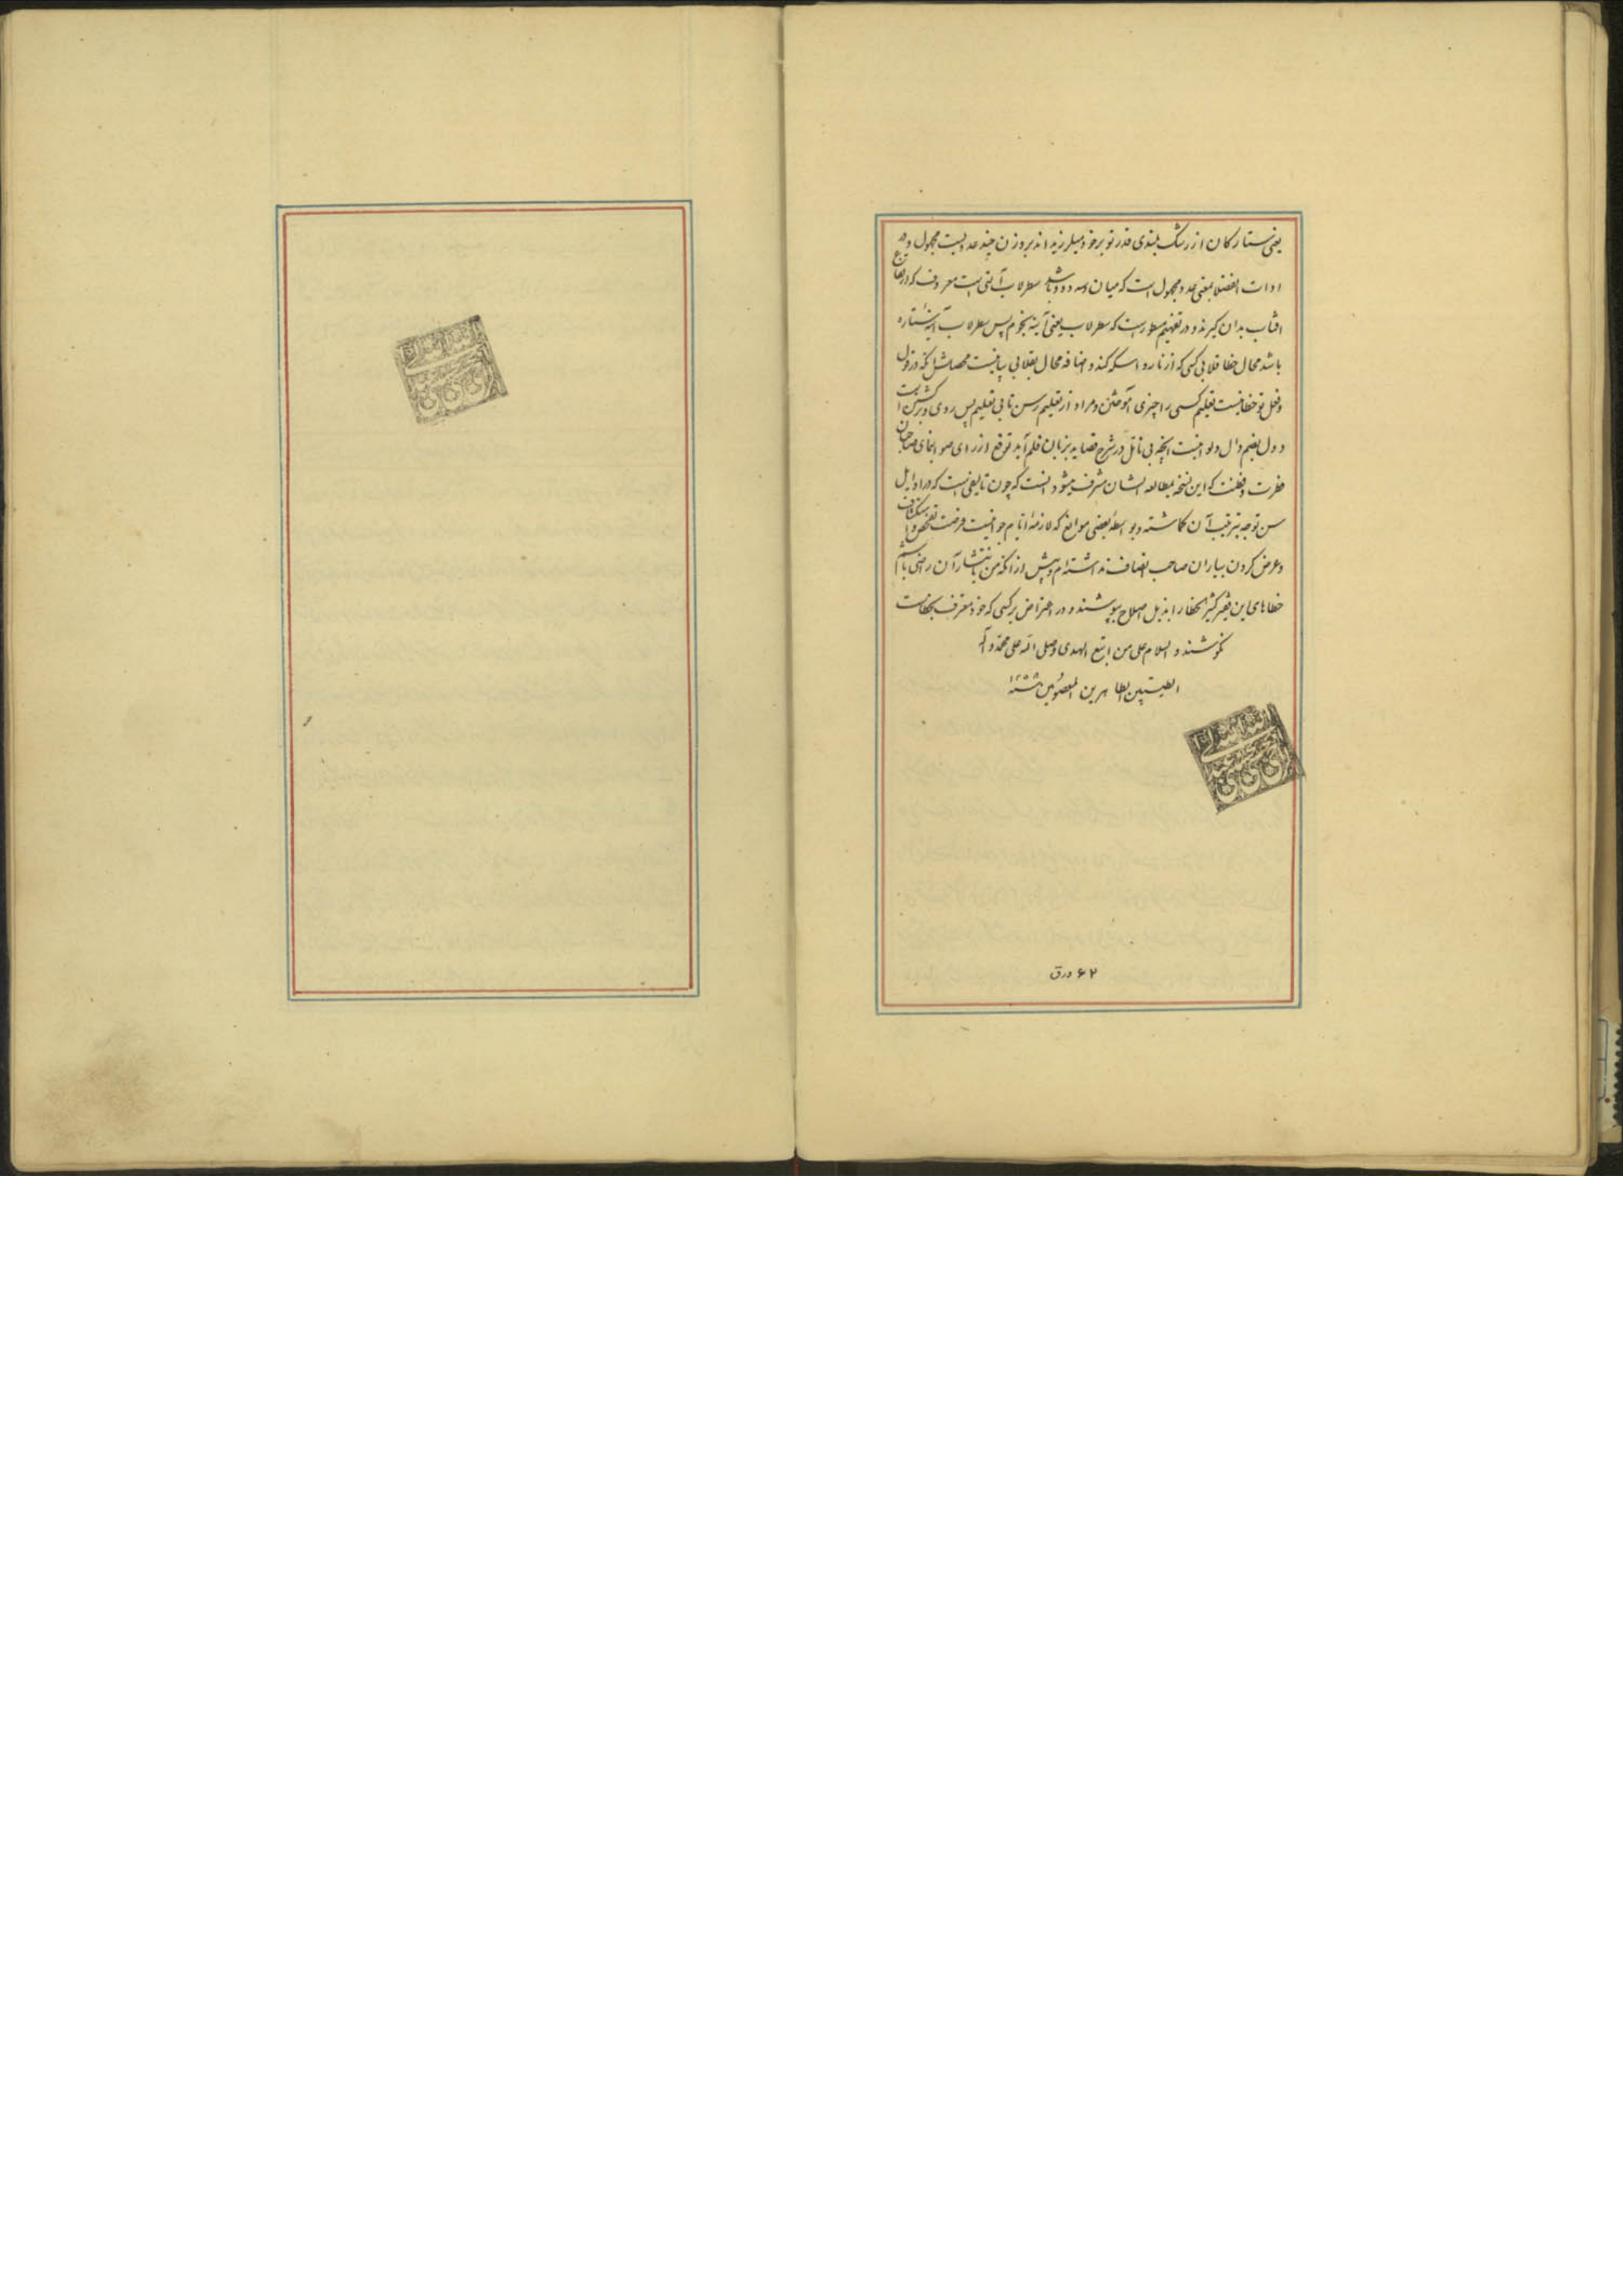 یعنی ستارکان از رشک بلندی قدر تو بر خود میلرزیده اند بر وزن چند عددیست مجهول و در
ادات الفضلا بمعنی عدد مجهول است که میان سه و ده باشد سطرلاب آلتی است معروف که ارتفاع
افتاب بدان گیرند و در تفهیم مسطور است که سطرلاب یعنی آینه نجوم پس سطرلاب آینه ستاره
باشد محال خطا قلابی کسی که از ناره سکه کند و اضافه محال بقلابی بیانیست محصلش آنکه در قول
و فعل تو خطا نیست تعلیم کسی را چیزی آموختن و مراد از تعلیم رسن تابی تعلیم پس روی و برگشتن است
دول بضم دال دلو اینست آنچه بی تامل در شرح قصاید بزبان قلم آید توقع از رای صواب نمای صاحبان
فطرت و فطنت که این نسخه بمطالعه ایشان مشرف میشود آنست که چون تالیفی است که در اوایل
سن توجه بترتیب آن گماشته و بواسطه بعضی موانع که لازمه ایام جوانیست فرصت تفحص و استکشاف
و عرض کردن بیاران صاحب انصاف نداشته ام و پیش از آنکه من بانتشار آن راضی باشم
خطاهای این فقیر کثیر الخطا را بذیل اصلاح بپوشند و در اعتراض بر کسی که خود معترف بخطاست
نکوشند و السلام علی من اتبع الهدی و صلی الله علی محمد و آله
الطیبین الطاهرین المعصومین
۶۲ ورق